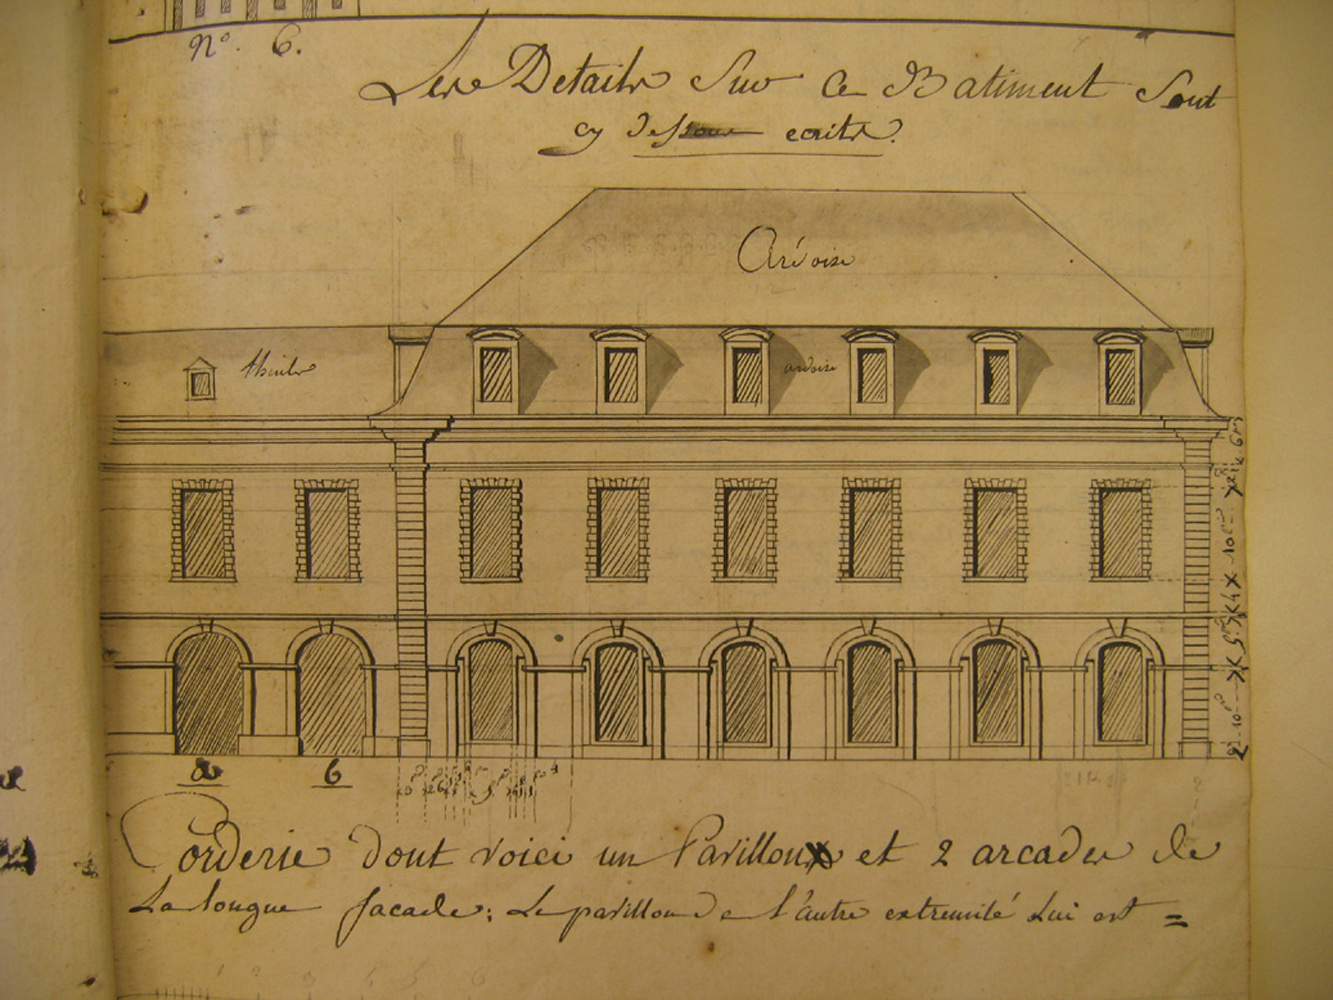 N°. 6.
Les Details Sur Ce Batiment Sont
cy dessous ecrits.
Ardoise
thuiles
ardoise
a
b
Corderie dont voici un Pavillon et 2 arcades de
La longue facade; Le pavillon de l'autre extremité Lui est =